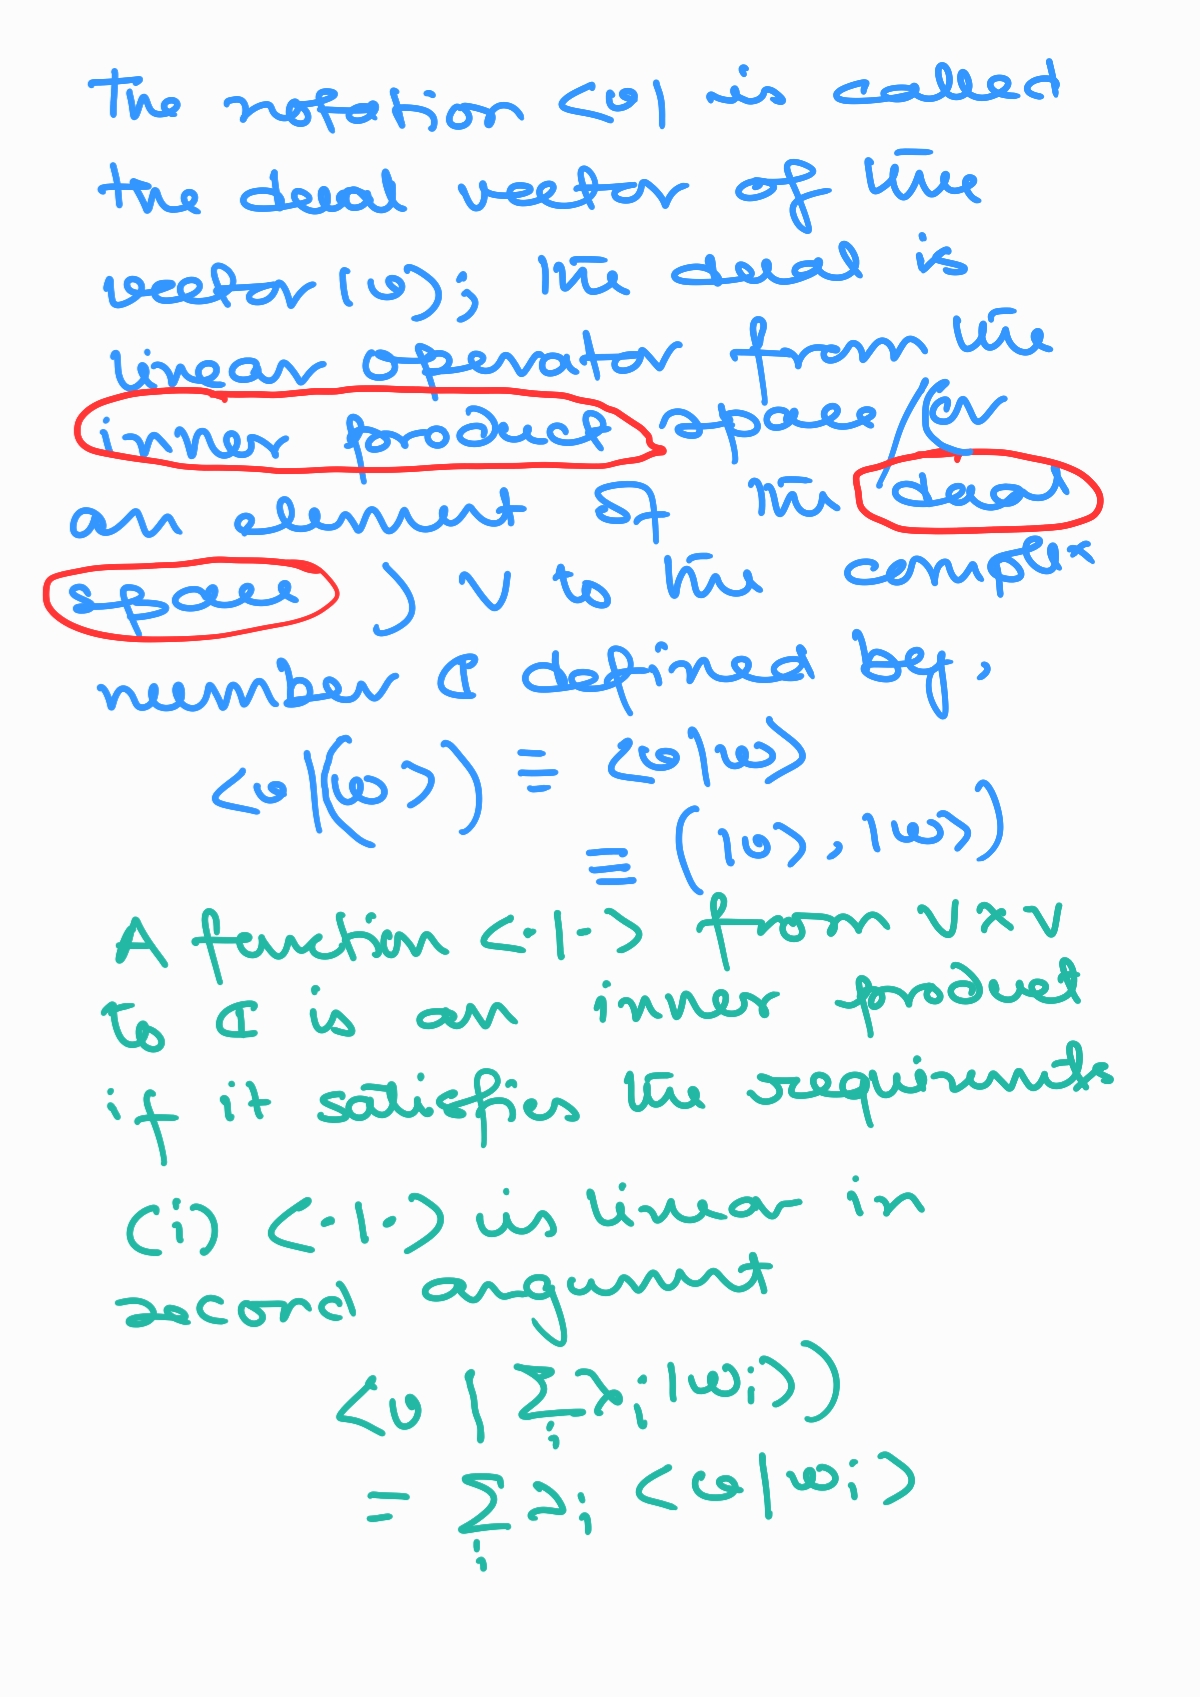 The notation <v| is called
the dual vector of the
vector |v>; the dual is
linear operator from the
inner product space /(or
an element of the dual
space ) V to the complex
number ℂ defined by,
<v|(|w>) ≡ <v|w>
≡ (|v>, |w>)
A function <·|·> from V×V
to ℂ is an inner product
if it satisfies the requirements
(i) <·|·> is linear in
second argument
<v | Σ_i λ_i |w_i>)
= Σ_i λ_i <v|w_i>